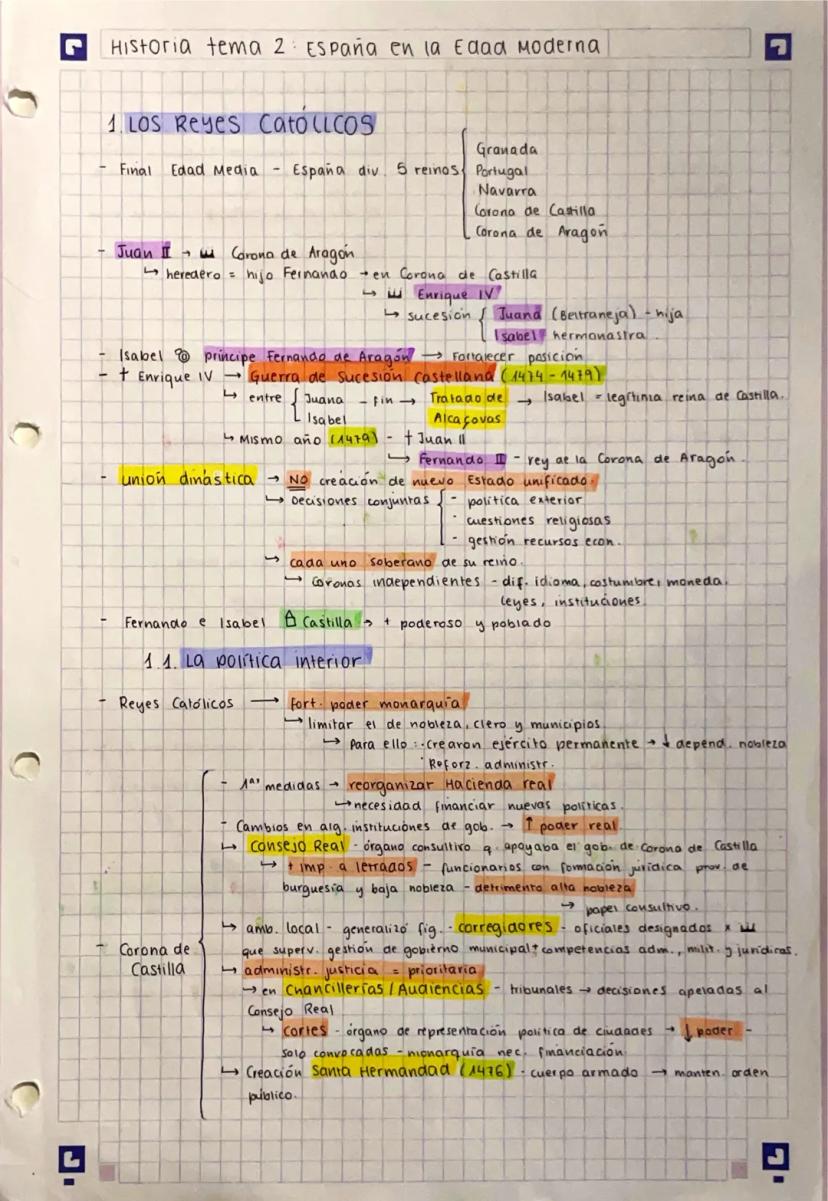 Historia tema 2: España en la Edad Moderna
1. Los Reyes Católicos
- Final Edad Media - España div. 5 reinos
Granada
Portugal
Navarra
Corona de Castilla
Corona de Aragón
- Juan II → Corona de Aragón
↳ heredero = hijo Fernando → en Corona de Castilla
↳ Enrique IV
↳ sucesión { Juana (Beltraneja) - hija
Isabel hermanastra.
- Isabel príncipe Fernando de Aragón → Fortalecer posición
- † Enrique IV → Guerra de Sucesión Castellana (1474-1479)
↳ entre { Juana - fin → Tratado de → Isabel = legítima reina de Castilla.
Isabel Alcaçovas
↳ Mismo año (1479) - † Juan II
↳ Fernando II - rey de la Corona de Aragón.
- unión dinástica → NO creación de nuevo Estado unificado.
↳ Decisiones conjuntas { - política exterior
- cuestiones religiosas
- gestión recursos econ.
↳ cada uno soberano de su reino.
↳ Coronas independientes - dif. idioma, costumbre, moneda,
leyes, instituciones.
- Fernando e Isabel Castilla → + poderoso y poblado
1.1. La política interior
- Reyes Católicos → Fort. poder monarquía
↳ limitar el de nobleza, clero y municipios
↳ Para ello: · Crearon ejército permanente → ↓ depend. nobleza
· Reforz. administr.
- Corona de Castilla
- 1ªˢ medidas → reorganizar Hacienda real
↳ necesidad financiar nuevas políticas.
- Cambios en alg. instituciones de gob. → ↑ poder real
↳ Consejo Real - órgano consultivo q. apoyaba el gob. de Corona de Castilla
↳ + imp. a letrados - funcionarios con formación jurídica prov. de
burguesía y baja nobleza - detrimento alta nobleza
↳ papel consultivo.
↳ amb. local - generalizó fig. - corregidores - oficiales designados x
que superv. gestión de gobierno municipal + competencias adm., milit. y jurídicas.
↳ administr. justicia = prioritaria
↳ en Chancillerías / Audiencias - tribunales → decisiones apeladas al
Consejo Real
↳ Cortes - órgano de representación política de ciudades → ↓ poder -
solo convocadas - monarquía nec. financiación
↳ Creación Santa Hermandad (1476) - cuerpo armado → manten. orden
público.